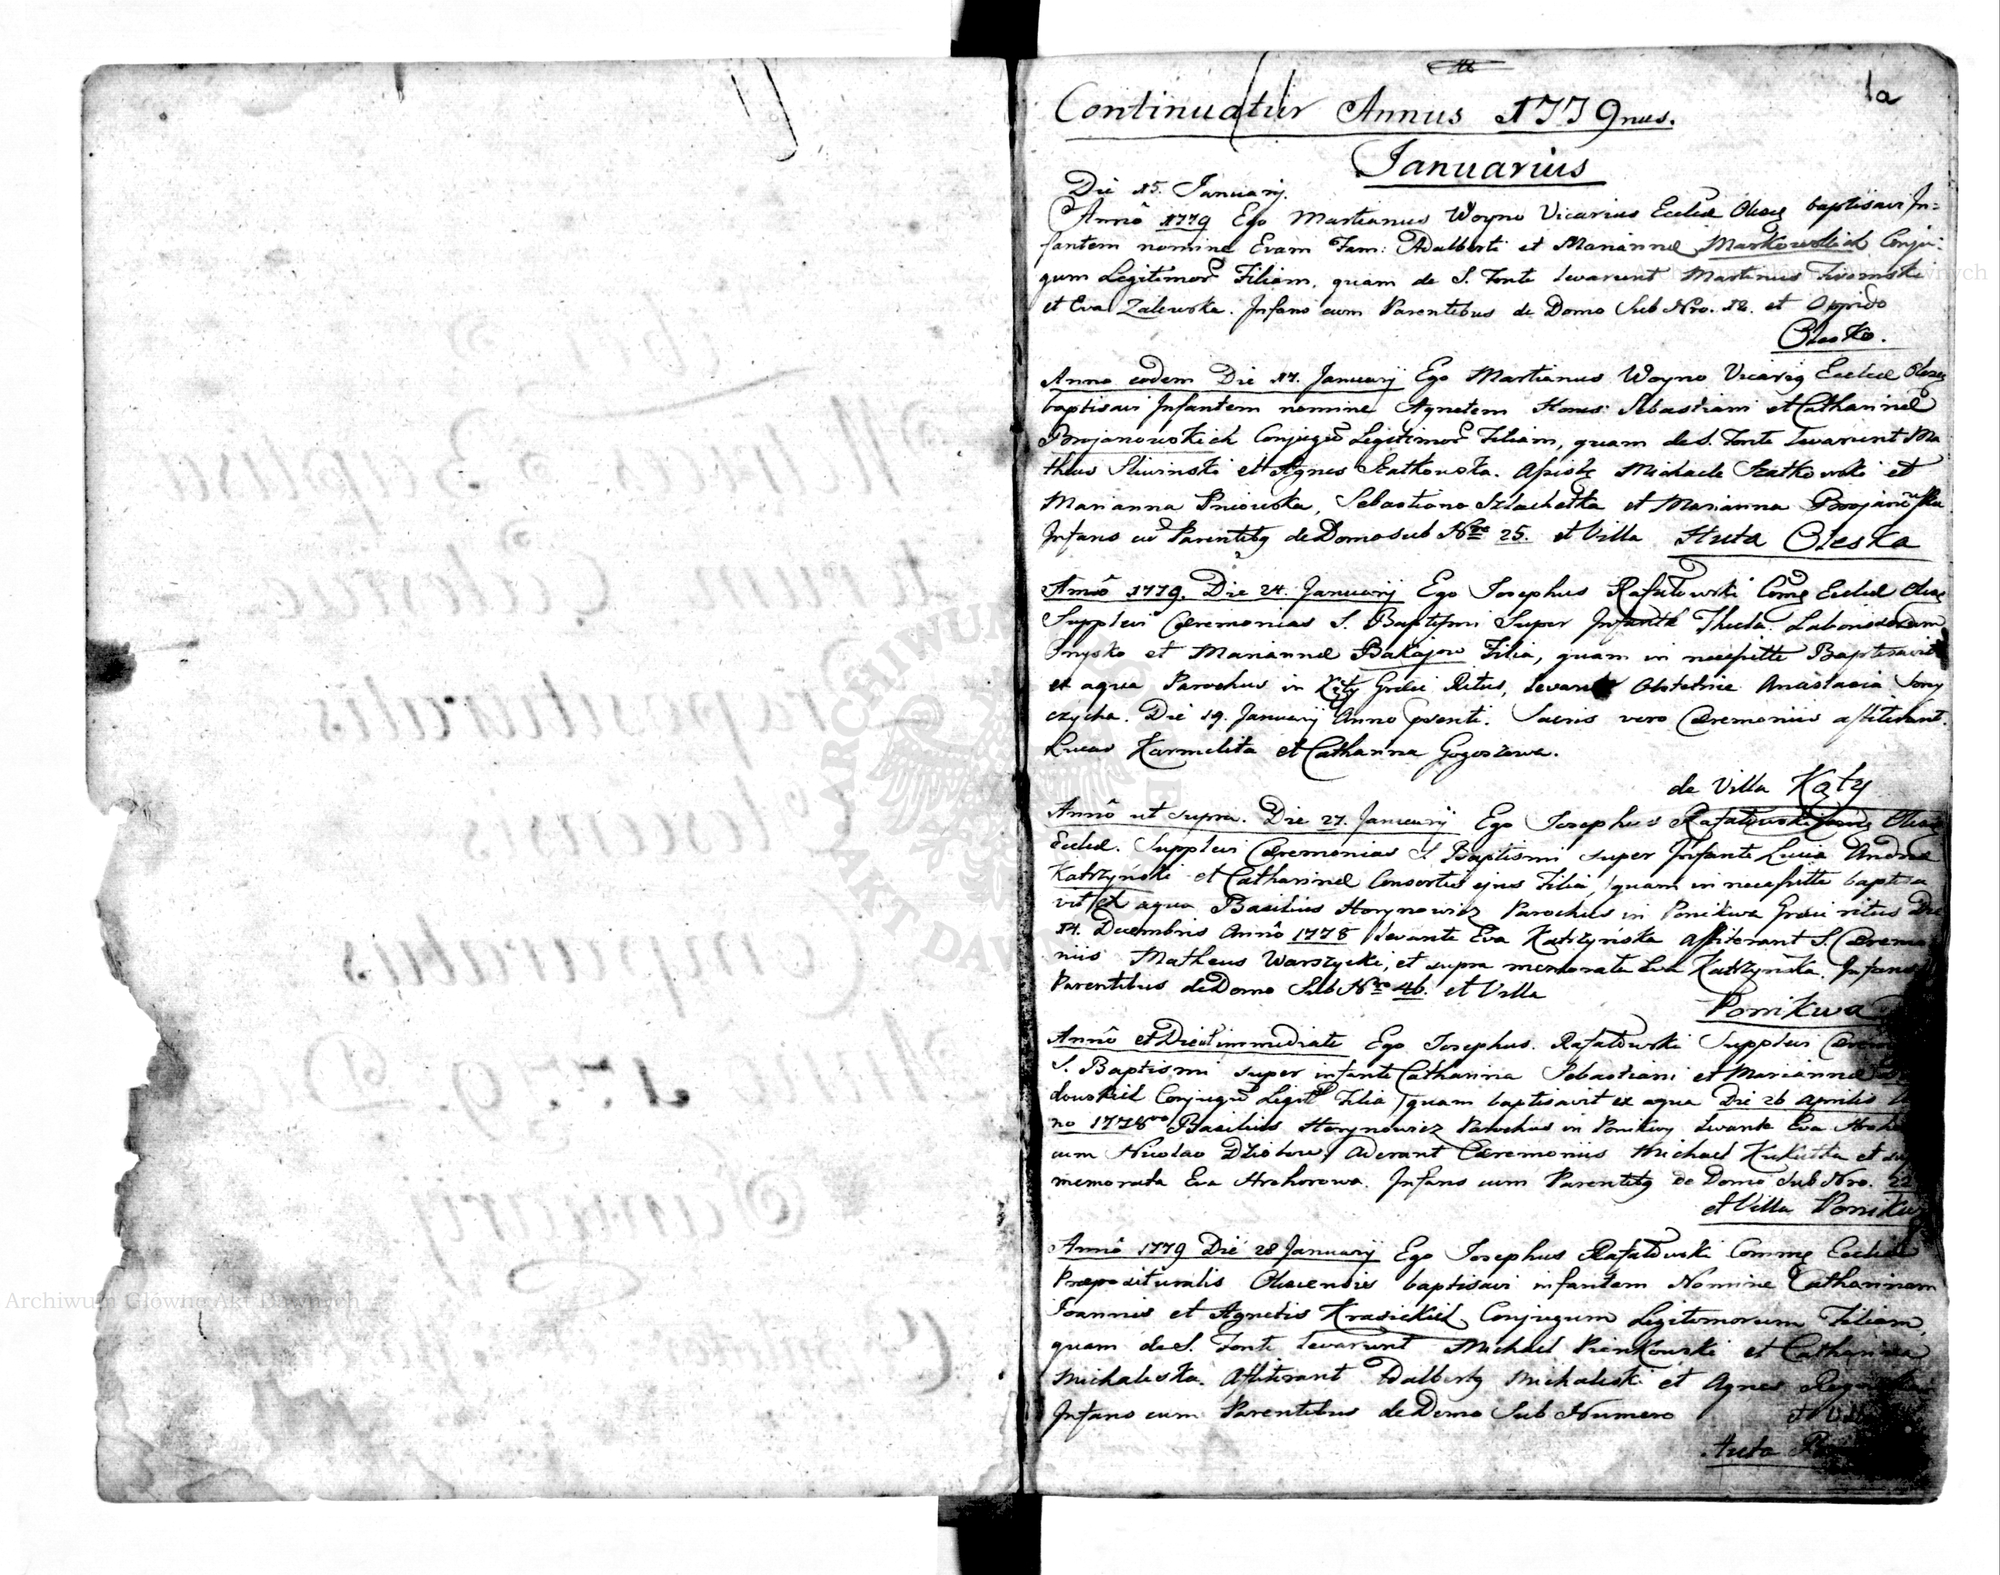 1a
Continuatur Annus 1779nus.
Januarius
Die 15. Januarij.
Annô 1779 Ego Martianus Woyno Vicarius Eccliæ Olesc baptisavi In=
fantem nomine Evam Fam: Adalberti et Mariannæ Markowskich Conju=
gum Legitimor Filiam, quam de S. Fonte levarunt Martinus
et Eva Zalewska. Infans cum Parentibus de Domo Sub Nro. 12. et Oppido
Olesko.
Anno eodem Die 17. Januarij Ego Martianus Woyno Vicarig Eccliæ Olesc
baptisavi Infantem nomine Agnetem Hones: Sebastiani et Catharinæ
Brojanowskich Conjugũ Legitimor Filiam, quam de S. Fonte levarunt Ma
theus Sliwinski et Agnes Szatkowska. Michaele Szatkowski et
Marianna Sniowska, Sebastiano Szlachetka et Marianna
Infans cũ Parentibg de Domo sub Nro 25. et Villa Huta Oleska
Annô 1779. Die 24. Januarij Ego Josephus Rafałowski Comg Eccliæ Olesc
Supplevi Cæremonias S. Baptismi Super Infante Thecla Laboriosorum
et Mariannæ Bakajow Filia, quam in necessitte Baptisavit
ex aqua Parochus in Kąty Græci Ritus, Levante Obstetrice Anastasia
czycha. Die 19. Januarij Anno psenti. Sacris vero Cæremoniis assiterant.
Lucas Karmelita et Catharina Gogoszowa.
de Villa Kąty
Annô ut supra. Die 27. Januarij Ego Josephus Rafałowski Comg Olesc
Eccliæ. Supplevi Cæremonias S. Baptismi super Infante Lucia Andreæ
Katrzyński et Catharinæ Consortis ejus Filia, quam in necessitte baptisa
vit ex aqua Basilius Horynowicz Parochus in Ponikwa Græci ritus Die
14. Decembris Annô 1778 levante Eva Katrzyńska Assiterant S. Cæremo
niis Matheus Warszycki, et supra memorata Eva Katrzyńska. Infans
Parentibus de Domo Sub Nro 46. et Villa
Ponikwa
Annô et Die ut immediate Ego Josephus Rafałowski Supplevi
S. Baptismi super infante Catharina Sebastiani et Mariannæ
dowskich Conjugũ Legit Filia quam baptisavit ex aqua Die 26 Aprilis
no 1778vo Basilius Horynowicz Parochus in Ponikwy Levante Eva
cum Nicolao Aderant Cæremoniis Michael Kukułka et
memorata Eva Hrehorowa. Infans cum Parentibg de Domo Sub Nro. 22
et Villa Ponikwa
Annô 1779 Die 28 Januarij Ego Josephus Rafałowski Commg Eccliæ
Præpositurális Olescensis baptisavi infantem Nomine Catharinam
Joannis et Agnetis Krasickich Conjugum Legitimorum Filiam,
quam de S. Fonte levarunt Michael Pienkowski et Catharina
Michalska. Assiterant Adalbertg Michalski et Agnes
Infans cum Parentibus de Domo Sub Numero
Huta
Archiwum Główne Akt Dawnych